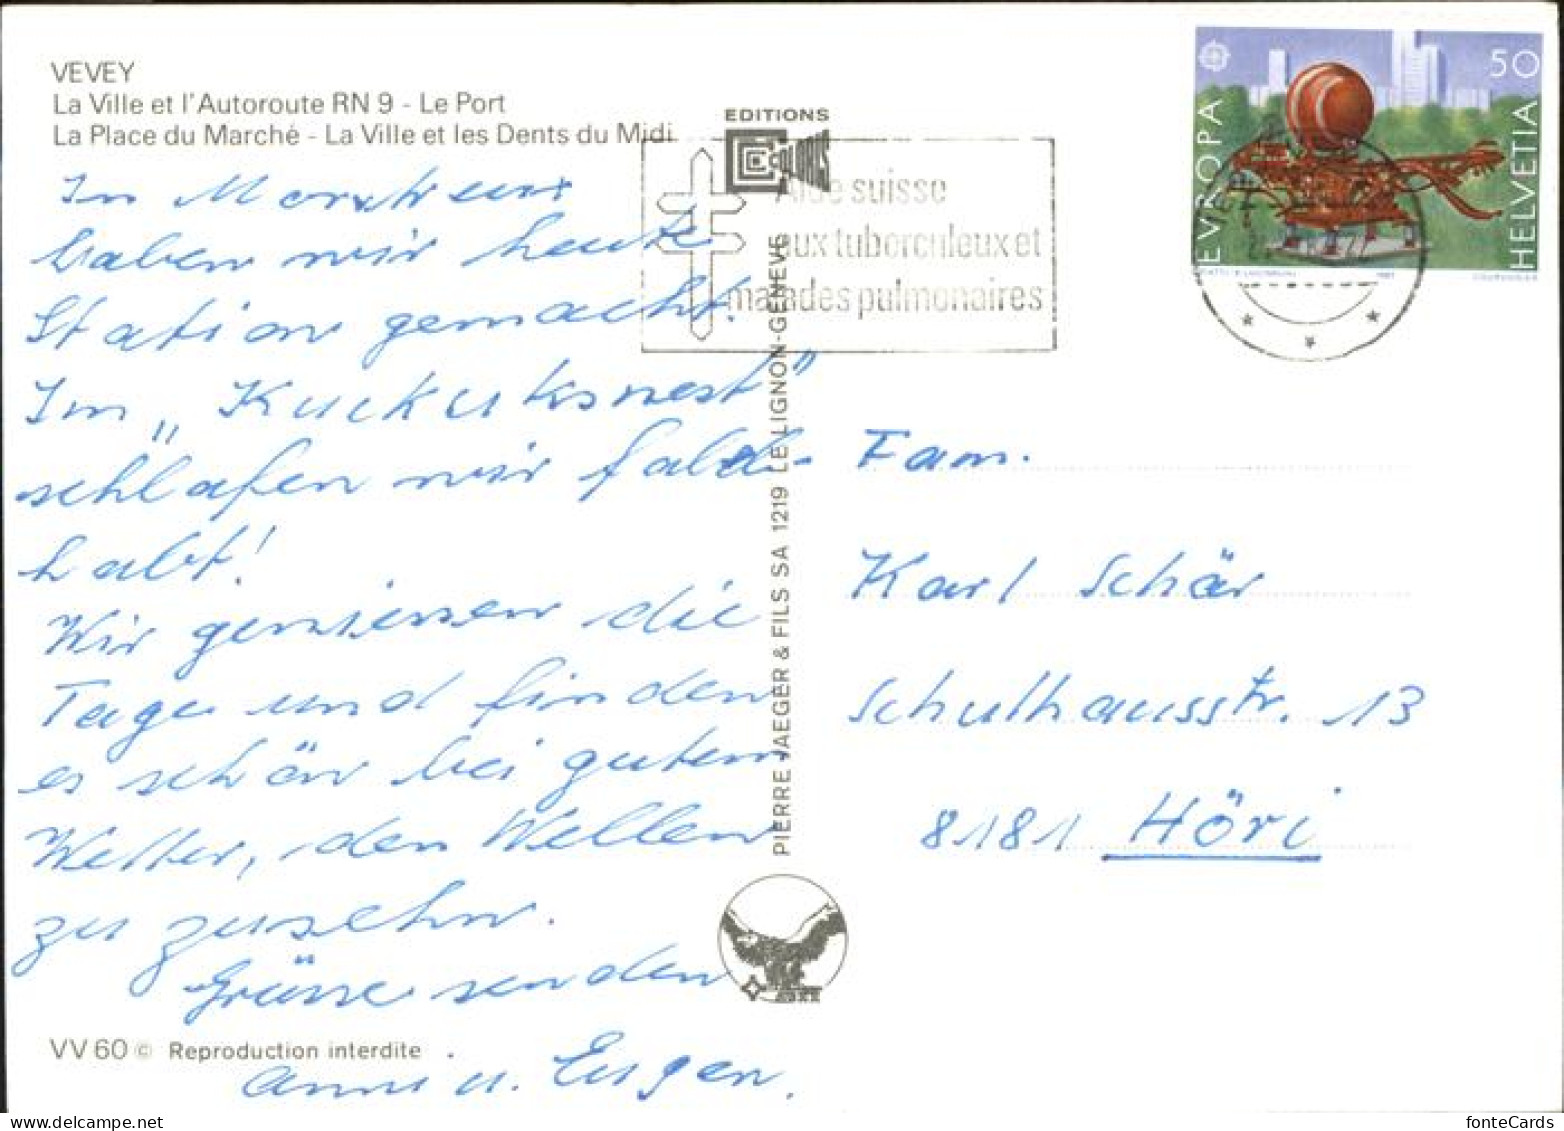 VEVEY
La Ville et l'Autoroute RN 9 - Le Port
La Place du Marché - La Ville et les Dents du Midi
EDITIONS
COLORIS
Aide suisse
aux tuberculeux et
malades pulmonaires
EUROPA
50
HELVETIA
In Montreux
haben wir heute
Station gemacht.
Im „Kuckuksnest"
schlafen wir
halt!
Wir geniessen die
Tage und finden
es schön bei gutem
Wetter, den Wellen
zu zusehn.
Grüsse senden
u. Eugen.
PIERRE JAEGER & FILS SA 1219 LE LIGNON-GENEVE
Fam.
Karl Schär
Schulhausstr. 13
8181 Höri
VV 60 © Reproduction interdite
fonteCards